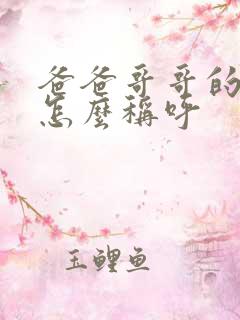 爸爸哥哥的
怎麼稱呼
玉鲤鱼